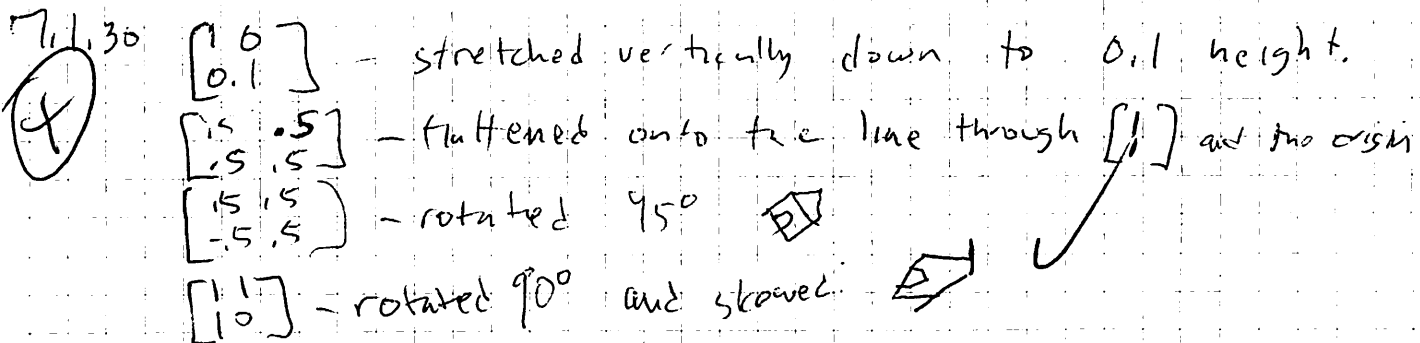 7.1.30 [1 0 0 .1] - stretched vertically down to 0.1 height.
[.5 .5 .5 .5] - flattened onto the line through [1 1] and the origin
[.5 .5 -.5 .5] - rotated 45°
[1 1 1 0] - rotated 90° and skewed.